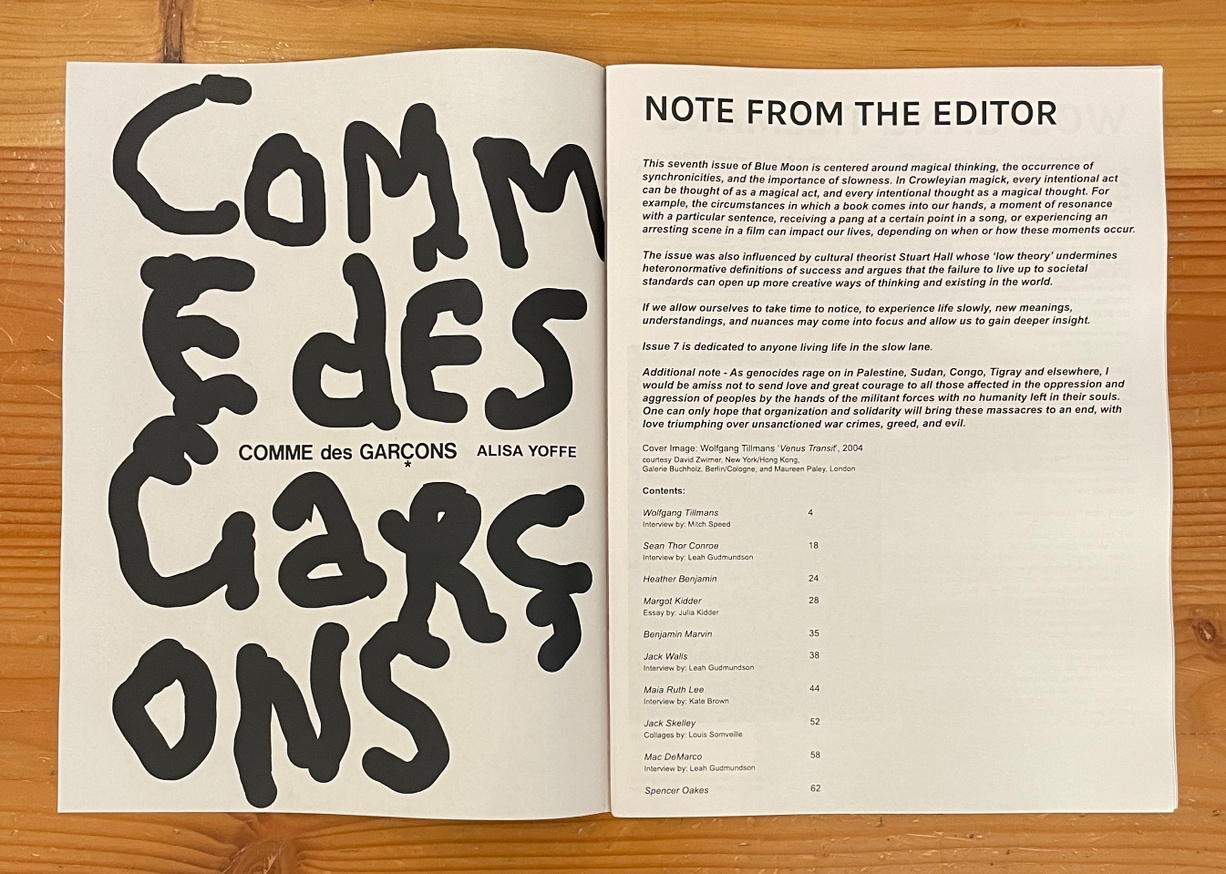 COMM
E dES
GaRÇ
ONS
COMME des GARÇONS ALISA YOFFE
*
NOTE FROM THE EDITOR
This seventh issue of Blue Moon is centered around magical thinking, the occurrence of
synchronicities, and the importance of slowness. In Crowleyian magick, every intentional act
can be thought of as a magical act, and every intentional thought as a magical thought. For
example, the circumstances in which a book comes into our hands, a moment of resonance
with a particular sentence, receiving a pang at a certain point in a song, or experiencing an
arresting scene in a film can impact our lives, depending on when or how these moments occur.
The issue was also influenced by cultural theorist Stuart Hall whose ‘low theory’ undermines
heteronormative definitions of success and argues that the failure to live up to societal
standards can open up more creative ways of thinking and existing in the world.
If we allow ourselves to take time to notice, to experience life slowly, new meanings,
understandings, and nuances may come into focus and allow us to gain deeper insight.
Issue 7 is dedicated to anyone living life in the slow lane.
Additional note - As genocides rage on in Palestine, Sudan, Congo, Tigray and elsewhere, I
would be amiss not to send love and great courage to all those affected in the oppression and
aggression of peoples by the hands of the militant forces with no humanity left in their souls.
One can only hope that organization and solidarity will bring these massacres to an end, with
love triumphing over unsanctioned war crimes, greed, and evil.
Cover Image: Wolfgang Tillmans ‘Venus Transit’, 2004
courtesy David Zwirner, New York/Hong Kong,
Galerie Buchholz, Berlin/Cologne, and Maureen Paley, London
Contents:
Wolfgang Tillmans 4
Interview by: Mitch Speed
Sean Thor Conroe 18
Interview by: Leah Gudmundson
Heather Benjamin 24
Margot Kidder 28
Essay by: Julia Kidder
Benjamin Marvin 35
Jack Walls 38
Interview by: Leah Gudmundson
Maia Ruth Lee 44
Interview by: Kate Brown
Jack Skelley 52
Collages by: Louis Somveille
Mac DeMarco 58
Interview by: Leah Gudmundson
Spencer Oakes 62